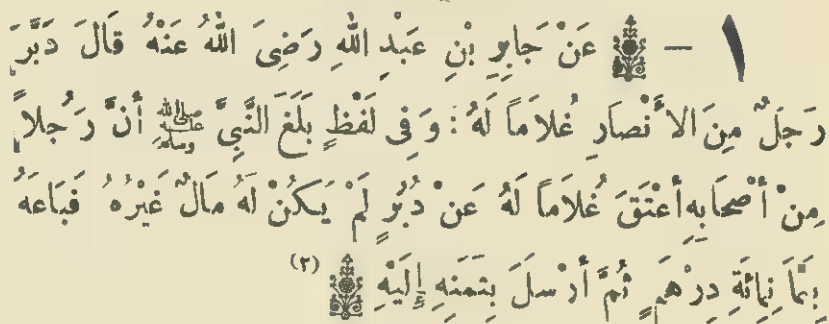 ١ - عَنْ جَابِرِ بْنِ عَبْدِ اللهِ رَضِىَ اللهُ عَنْهُ قَالَ دَبَّرَ
رَجَلٌ مِنَ الأَنْصَارِ غُلاَمَاً لَهُ : وَفِى لَفْظٍ بَلَغَ النَّبِىَّ ﷺ أَنَّ رَجُلاً
مِنْ أَصْحَابِهِ أَعْتَقَ غُلاَمَاً لَهُ عَنْ دُبُرٍ لَمْ يَكُنْ لَهُ مَالٌ غَيْرُهُ فَبَاعَهُ
بِثَمَانِمِائَةِ دِرْهَمٍ ثُمَّ أَرْسَلَ بِثَمَنِهِ إِلَيْهِ (٣)